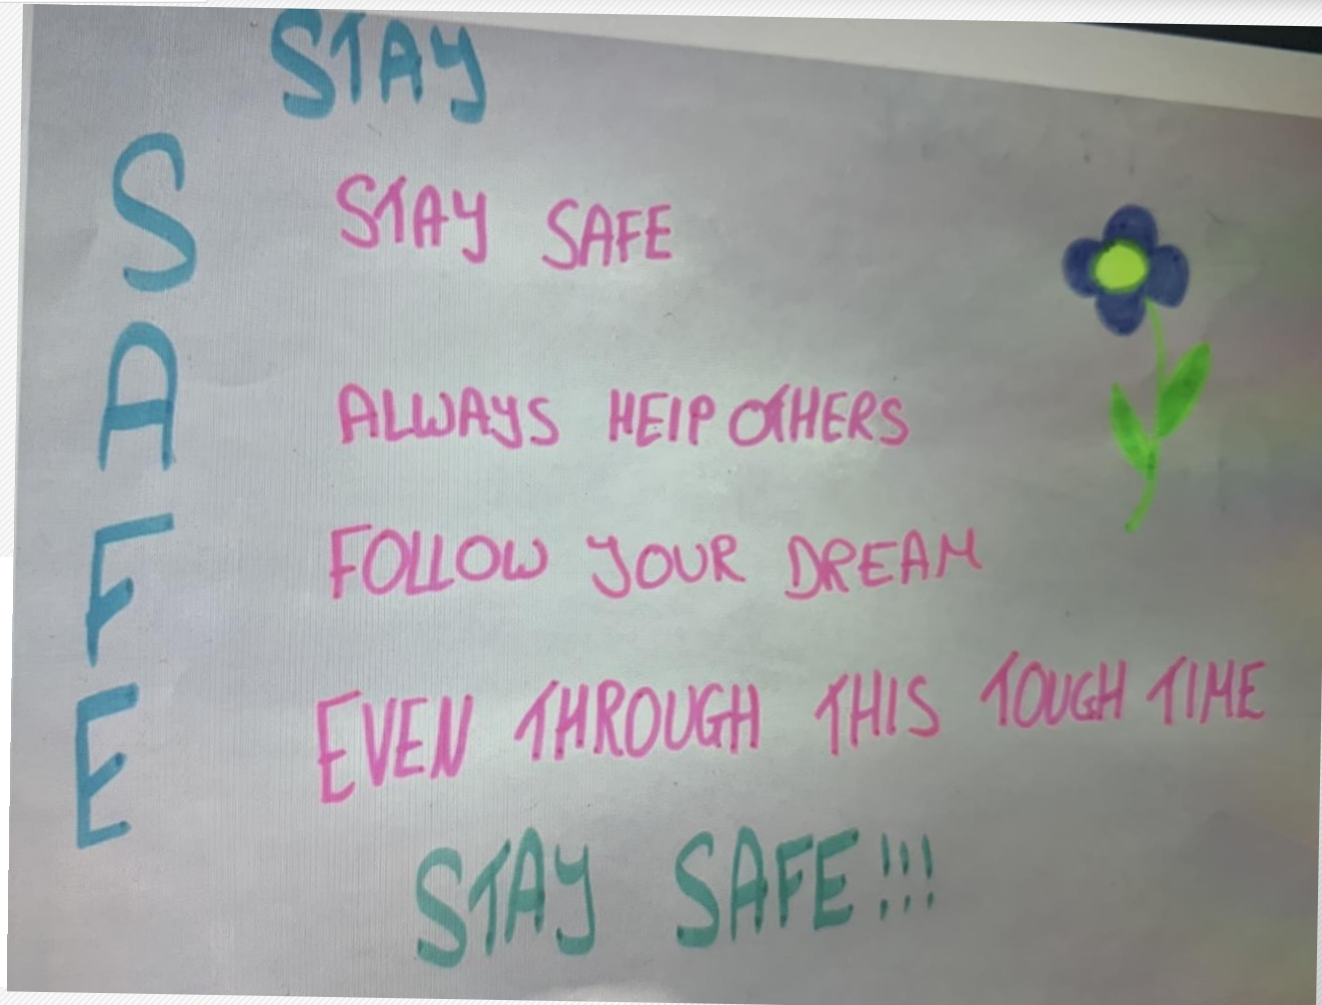 STAY
S STAY SAFE
A ALWAYS HElP OTHERS
F FOLLOW YOUR DREAM
E EVEN THROUGH THIS TOUGH TIME
STAY SAFE!!!